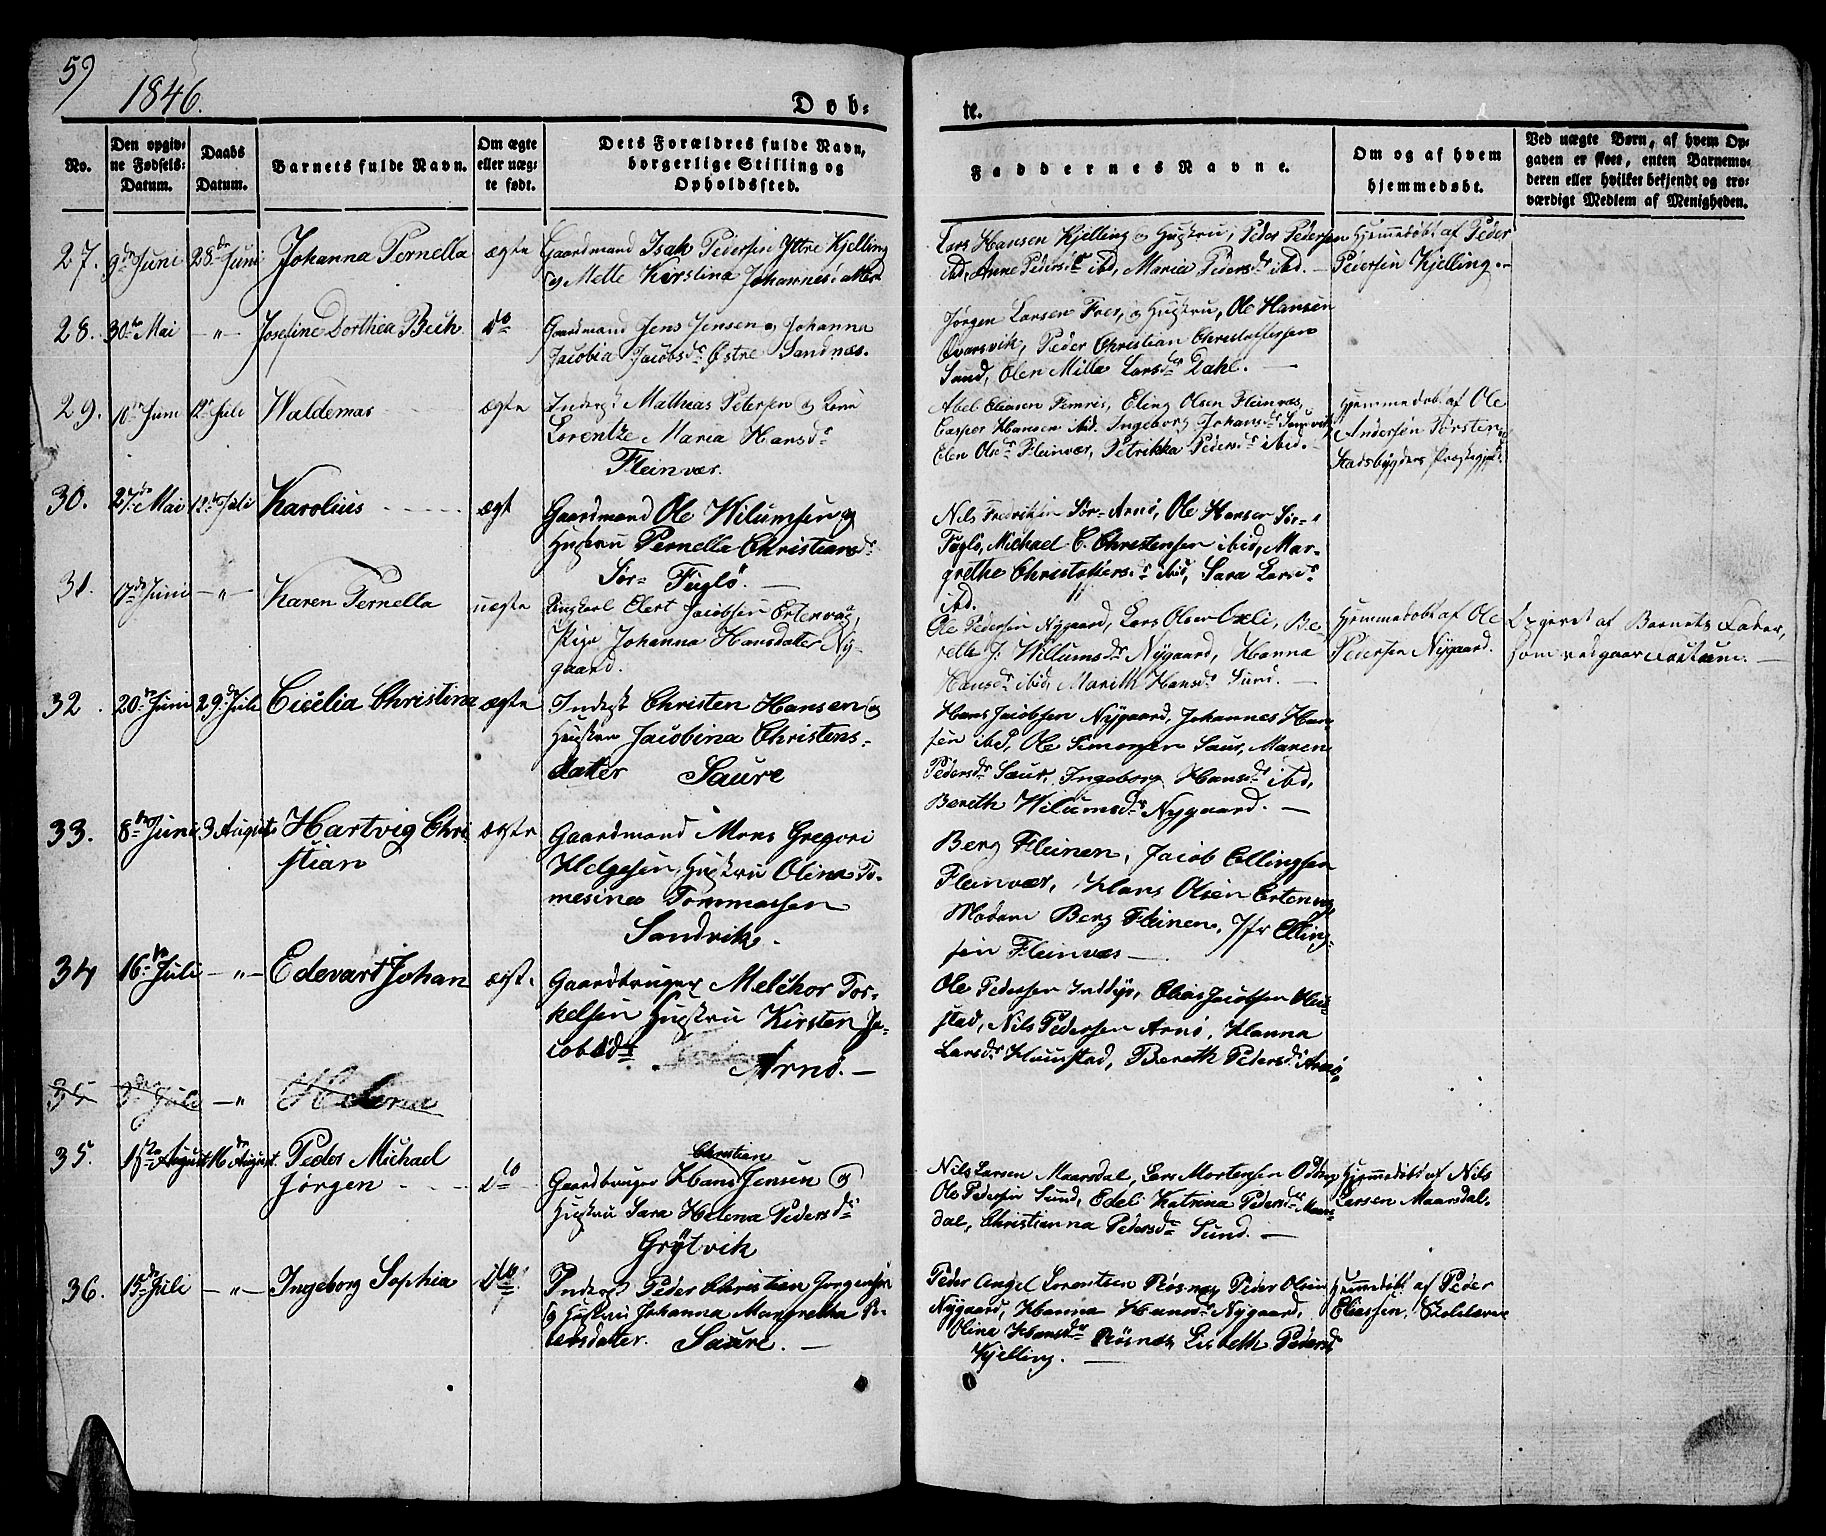 59
1846.
Døb-
te.
No.
Den opgiv-
ne Fødsels-
Datum.
Daabs
Datum.
Barnets fulde Navn.
Om ægte
eller uæg-
te født.
Dets Forældres fulde Navn,
borgerlige Stilling og
Opholdssted.
Faddernes Navne.
Om og af hvem
hjemmedøbt.
Ved uægte Børn, af hvem Op-
gaven er skeet, enten Barnemo-
deren eller hvilket bekjendt og tro-
værdigt Medlem af Menigheden.
27. 9de Juni 28de Juni Johanna Pernella ægte
Gaardmand Isak Pedersen Ytre Kjelling
og Mette Kirstina Johannesdatter
Lars Hansen Kjelling og Hustru, Peder Pedersen
ibd, Anne Pedersdr ibd, Maria Pedersdr ibd. —
Hjemmedøbt af Peder
Pedersen Kjelling. —
28. 30te Mai — " — Josefine Dorthea Beck do
Gaardmand Jens Jensen og Johanna
Jacobia Jacobsdr Østre Sandnæs.
Jørgen Larsen Fræs, og Hustru, Ole Hansen
Qvarsvik, Peder Christian Christoffersen
Sund, Elen Milla Larsdr Dahl. —
29. 10de Juni 12te Juli Waldemar ægte
Inderst Mathias Petersen og Kone
Lorentze Maria Hansdr
Fleinvær.
Abel Eliasen Femris, Eling Olsen Fleinvær,
Casper Hansen ibd. Ingeborg Johansdr Sundvik
Elen Olsdr Fleinvær, Petrikka Pedersdr ibid. —
Hjemmedøbt af Ole
Andersen
Stadsbygdens Præstegjeld.
30. 27de Mai 12te Juli Karolius ægt
Gaardmand Ole Wilumsen og
Hustru Pernella Christiansdr
Sør- Fuglø. —
Nils Fredriksen Sør-Arnø, Ole Hansen Sør-
Fuglø, Michael C. Christensen ibid, Mar-
grethe Christofersdr ibid, Sara Larsdr
ibd.
31. 17de Juni — " — Karen Pernella uægte
Ungkarl Elert Jacobsen Estervaag,
Pige Johanna Hansdatter Ny-
gaard.
Ole Pedersen Nygaard, Lars Olsen Oxli, Be-
reth J. Willumsdr Nygaard, Hanna
Hansdr ibid, Marith Hansdr Sund. —
Hjemmedøbt af Ole
Pedersen Nygaard.
Opgivet af Barnets Fader,
som vedgaar
32. 20de Juni 29de Juli Cicelia Christina ægte
Inderst Christen Hansen og
Hustru Jacobina Christens-
datter Saure
Hans Jacobsen Nygaard, Johannes Han-
sen ibid, Ole Simonsen Saur, Maren
Pedersdr Saur, Ingeborg Hansdr ibid,
Bereth Wilumsdr Nygaard. —
33. 8de Juni 3 August Hartvig Chri-
stian ægte
Gaardmand Mons Gregori
Helgesen, Hustru Olina To-
mesina Tommassen
Sandvik.
Berg Fleinen, Jacob Ellingsen
Fleinvær, Hans Olsen Estenvg
Madam Berg Fleinen, Jfr Elling-
sen Fleinvær —
34 16de Juli — " — Edevart Johan ægt.
Gaardbruger Melchor Tor-
kelsen Hustru Kirsten Ja-
cobsdr
Arnø. —
Ole Pedersen Inddyr, Elias Jacobsen Hun-
stad, Nils Pedersen Arnø, Hanna
Larsdr Hunstad, Bereth Pedersdr Arnø,
35 3de Juli — " Helena
35. 1ste August 16de August. Peder Michael
Jørgen do
Christian
Gaardbruger Hans Jensen og
Hustru Sara Helena Pedersdr
Grytvik
Nils Larsen Maarsdal, Lars Mortensen
Ole Pedersen Sund, Edel Katrina Pedersdr Maars-
dal, Christianna Pedersdr Sund. —
Hjemmedøbt af Nils
Larsen Maarsdal.
36. 15de Juli — " — Ingeborg Sophia do
Inderst Peder Christian Jørgensen
og Hustru Johanna Margretha Pe-
tersdatter. Saure. —
Peder Angel Lorentsen Røsnæs Peder Olsen
Nygaard, Hanna Hansdr Nygaard,
Olina Hansdr Røsnæs Lisbeth Pedersdr
Kjelling. —
Hjemmedøbt af Peder
Eliassen, Skolelærer